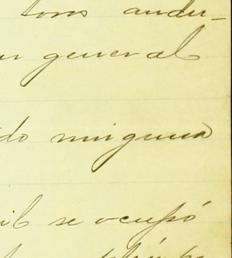 toros andu-
general
do ninguna
il se ocupó